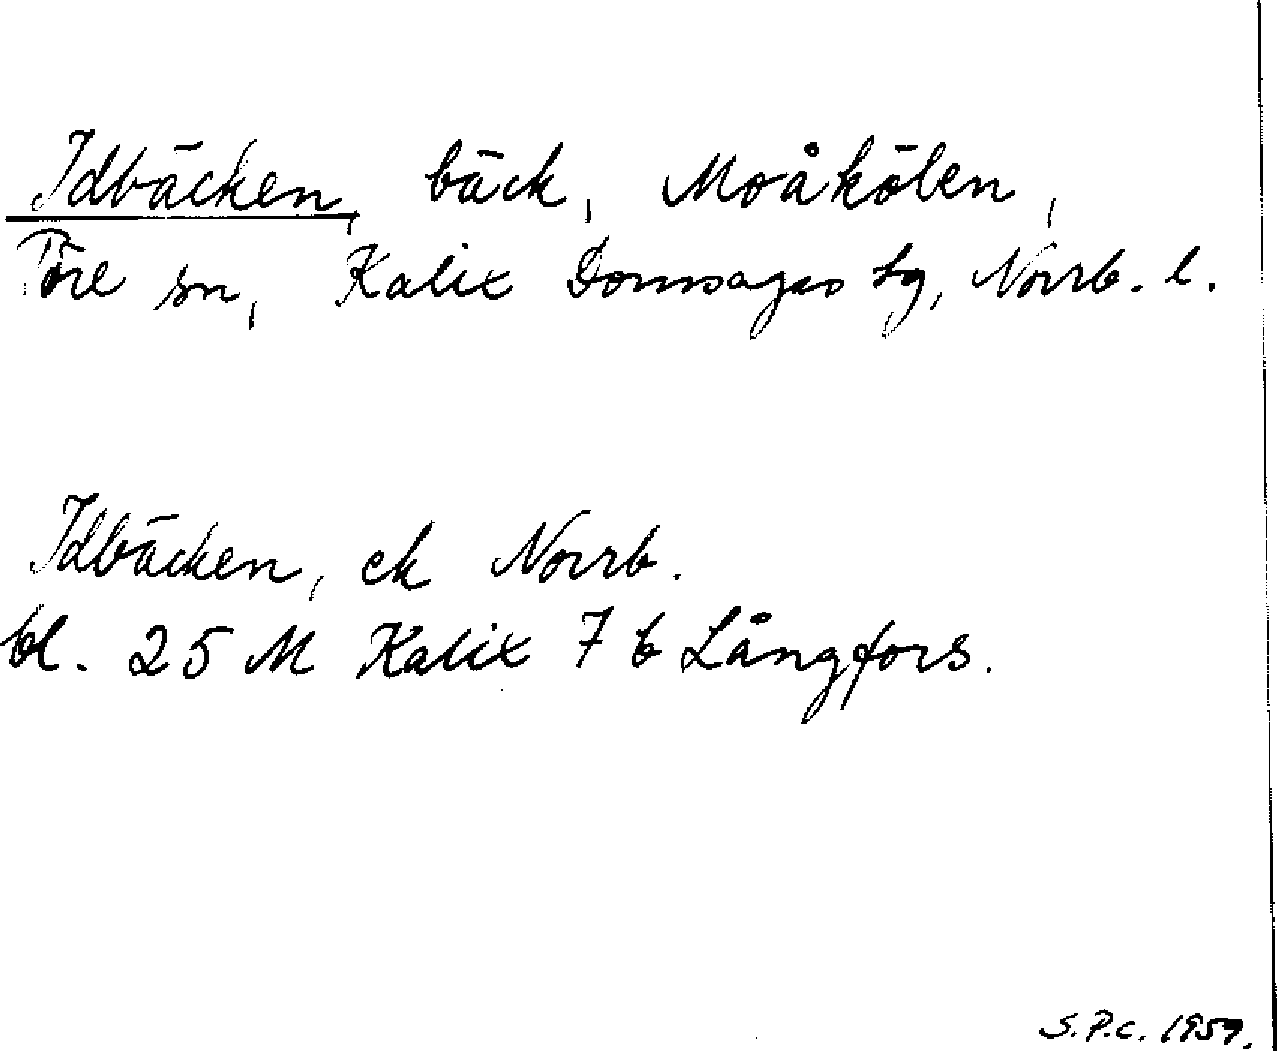 Idbäcken, bäck, Moåkölen,
Töre sn, Kalix Domsagas tg, Norrb. l.
Idbäcken, ek Norrb.
bl. 25 M Kalix 7 b Långfors.
S.P.C. 1959.